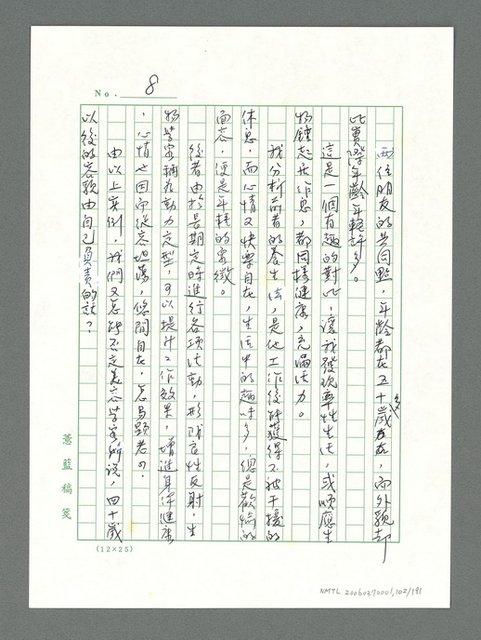 No. 8
兩位朋友的共同點，年齡都在五十多歲左右，而外貌却
比實際年齡年輕許多。
這是一個有趣的對比，讓我發現率性生活，或順應生
物鐘起居作息，都同樣健康，充滿活力。
我分析前者的養生法，是他工作後能獲得不被干擾的
休息，而心情又快樂自在，生活中的趣味多，總是歡愉的
面容，便是年輕的象徵。
後者由於長期定時進行各項活動，形成良性反射，生
物學家稱為動力定型，可以提升工作效果，增進身體健康
，心情也因而從容坦蕩，悠閒自在，怎易顯老？
由以上實例，我們又怎能不定美容學家所說，四十歲
以後的容貌由自己負責的話？
薏藍稿箋
(12×25)
NMTL 20060370001,102/191